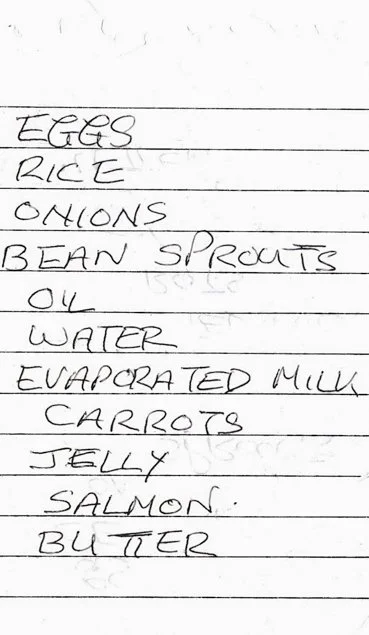 EGGS
RICE
ONIONS
BEAN SPROUTS
OIL
WATER
EVAPORATED MILK
CARROTS
JELLY
SALMON.
BUTTER